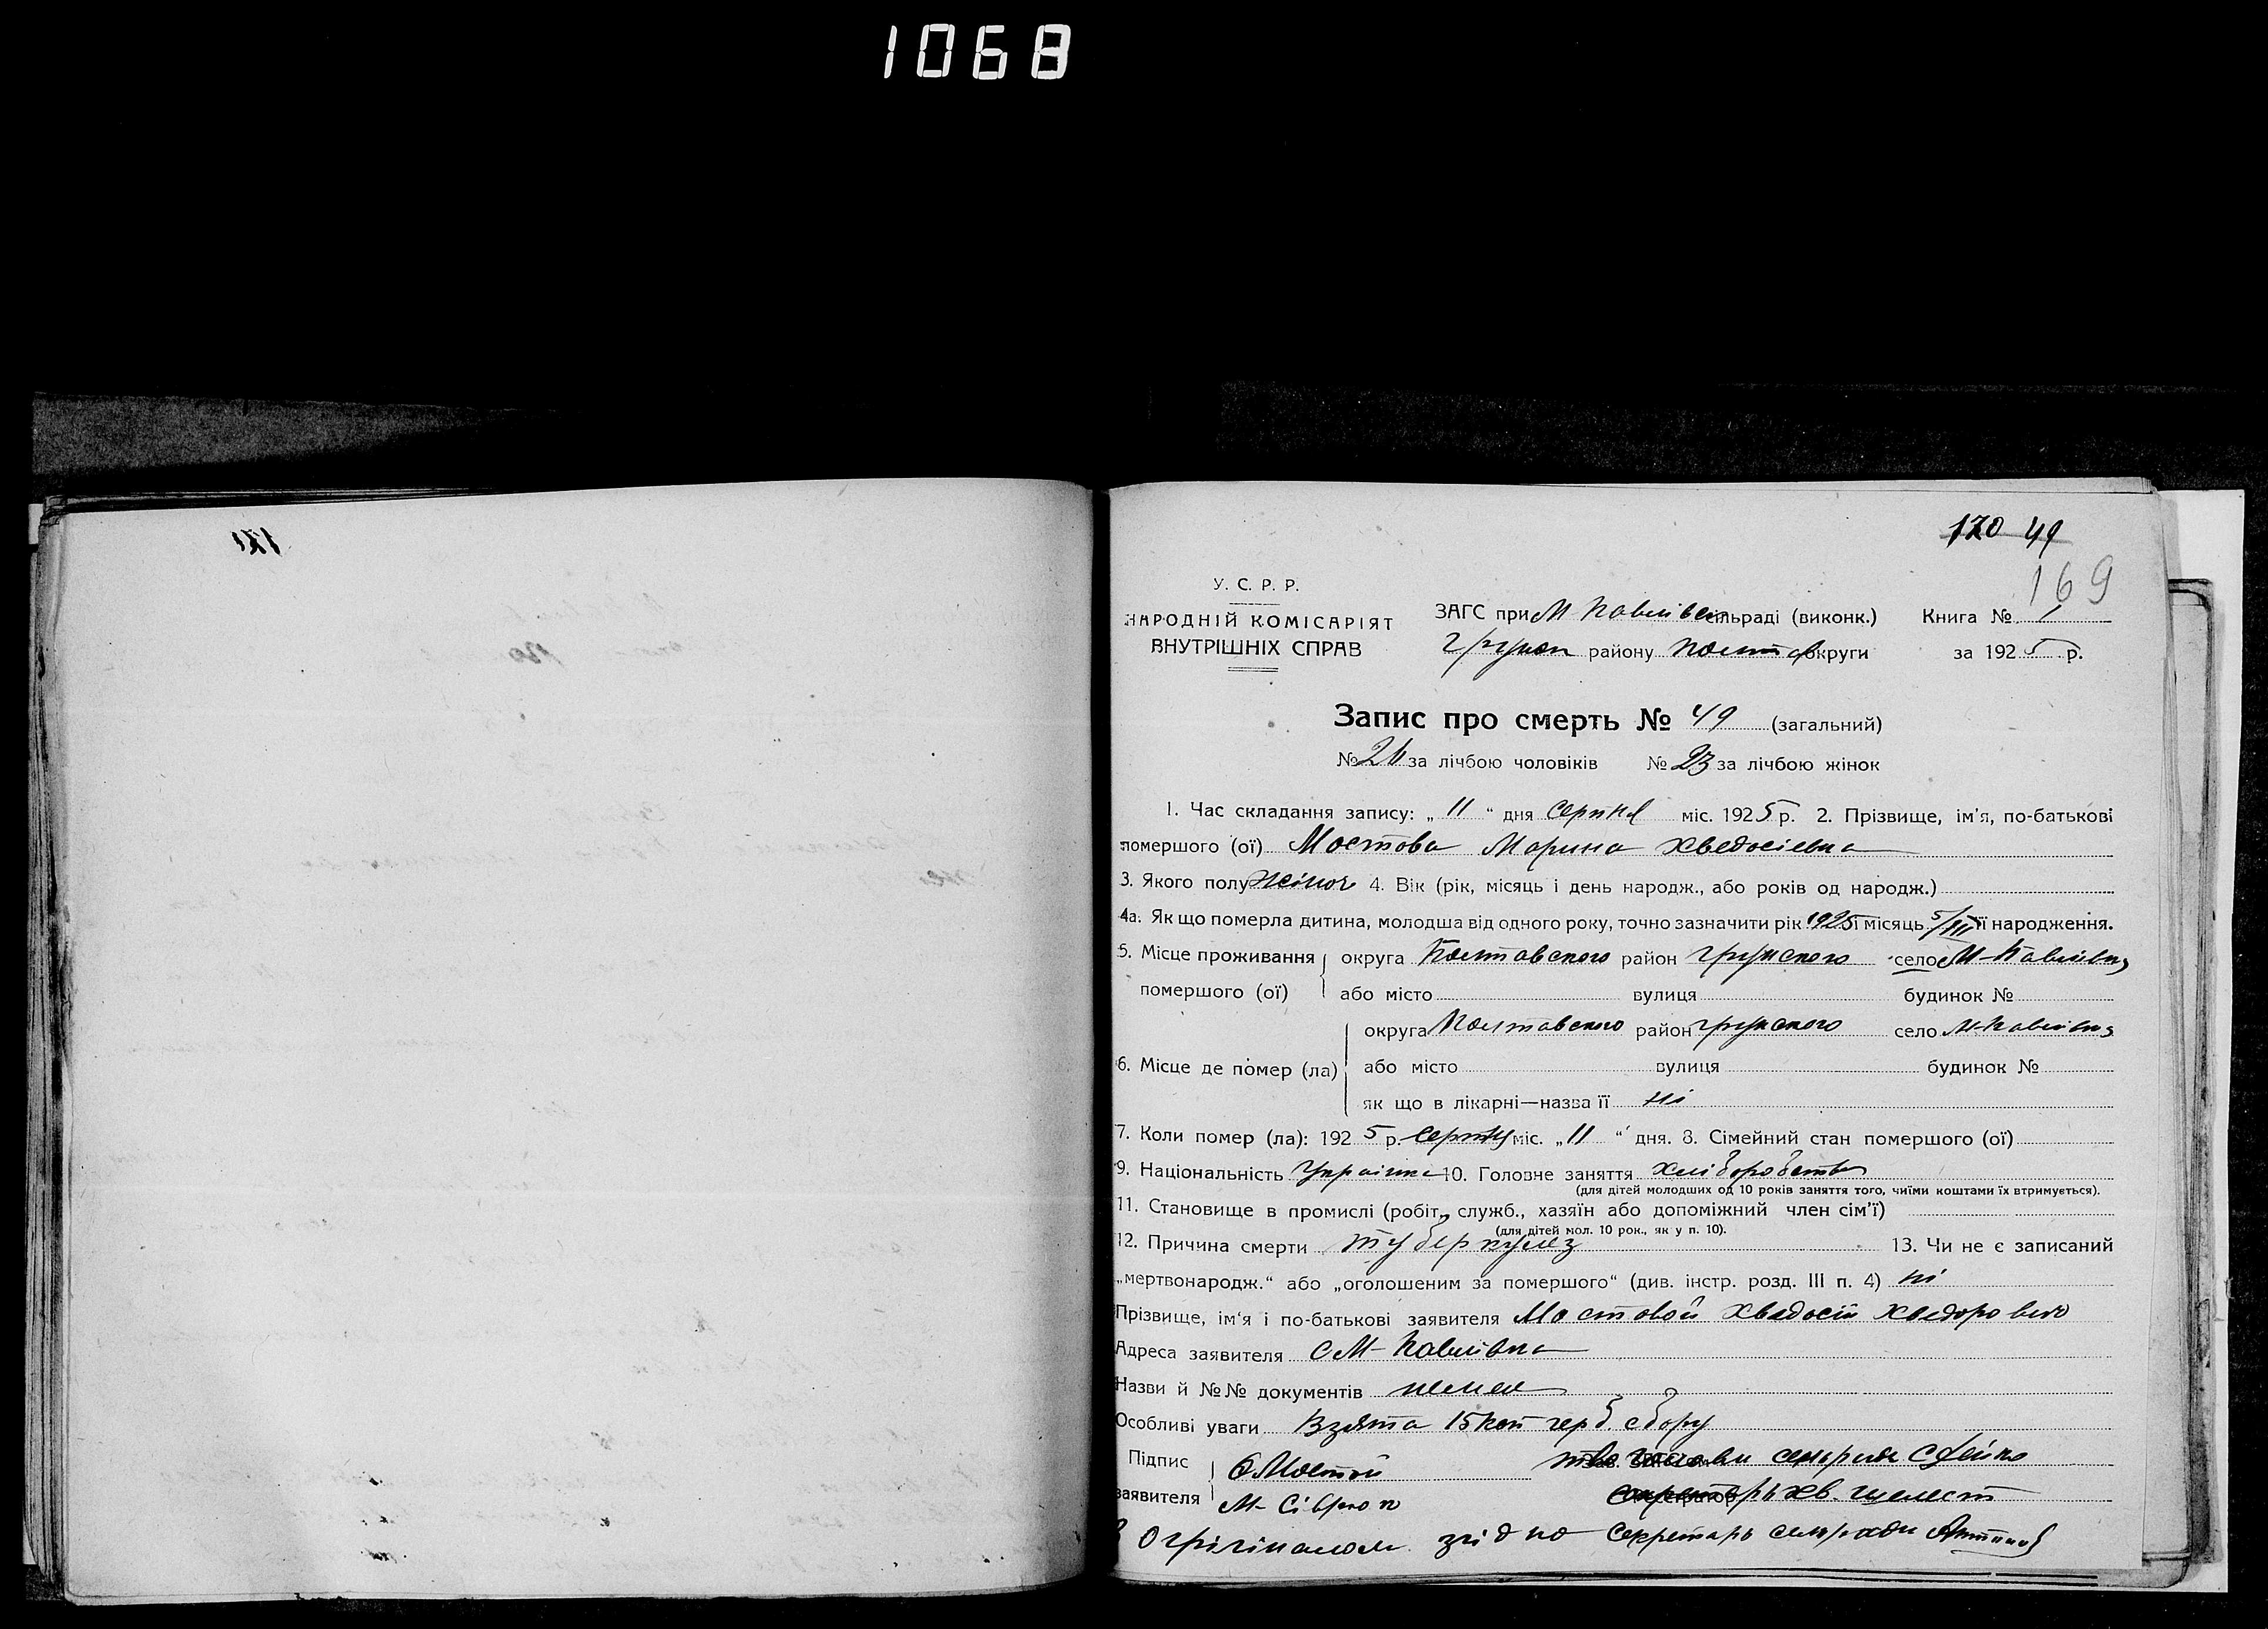 1068
120 49
169
У. С. Р. Р.
НАРОДНІЙ КОМІСАРІЯТ
ВНУТРІШНІХ СПРАВ
ЗАГС при М Павлівск сільраді (виконк.) Книга № 1
Грунськ району Полтав округи за 1925 р.
Запис про смерть № 49 (загальний)
№ 26 за лічбою чоловіків № 23 за лічбою жінок
1. Час складання запису: „11“ дня серпня міс. 1925 р. 2. Прізвище, ім'я, по-батькові
помершого (ої) Мостова Марина Хведосіевна
3. Якого полу жіноч 4. Вік (рік, місяць і день народж., або років од народж.)
4а. Як що померла дитина, молодша від одного року, точно зазначити рік 1925 і місяць 5/III її народження.
5. Місце проживання округа Полтавского район Грунского село М-Павлівка
помершого (ої) або місто вулиця будинок №
округа Полтавского район Грунского село М-Павлівка
6. Місце де помер (ла) або місто вулиця будинок №
як що в лікарні—назва її ні
7. Коли помер (ла): 1925 р. серпня міс. „11“ дня. 8. Сімейний стан помершого (ої)
9. Національність Українка 10. Головне заняття хліборобство
(для дітей молодших од 10 років заняття того, чиїми коштами їх втримується).
11. Становище в промислі (робіт., служб., хазяїн або допоміжний член сім'ї)
(для дітей мол. 10 рок., як у п. 10).
12. Причина смерти туберкульоз 13. Чи не є записаний
„мертвонародж.“ або „оголошеним за помершого“ (див. інстр. розд. III п. 4) ні
Прізвище, ім'я і по-батькові заявителя Мостовой Хведосій Хведорович
Адреса заявителя С М-Павлівка
Назви й №№ документів немае
Особливі уваги Взята 15 коп герб. сбору
Підпис Мостой голови сельради
заявителя М- секретарь Хв. Шелест
З Орігіналом згідно Секретарь сельради